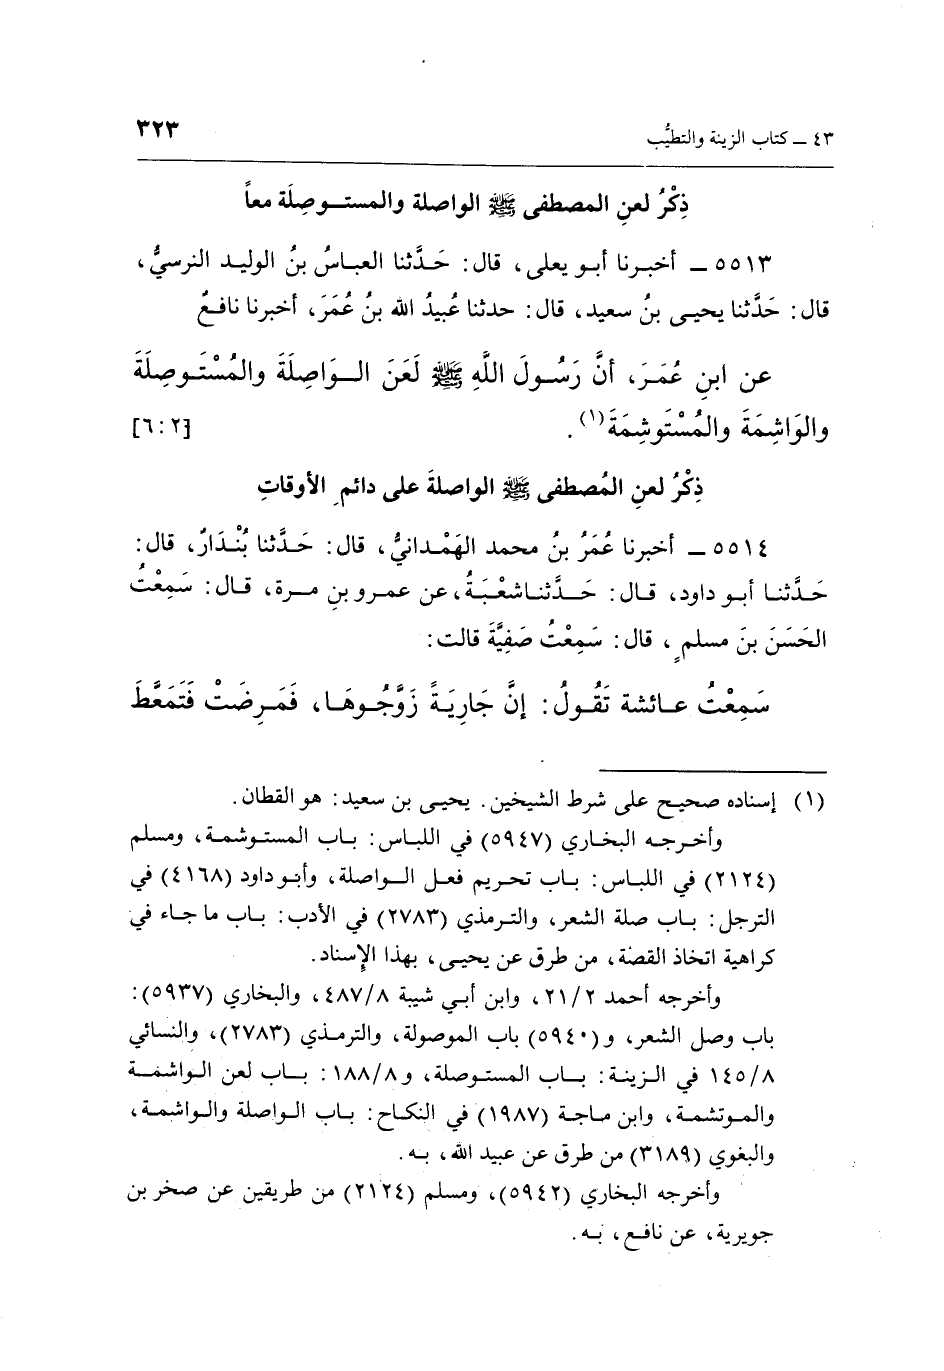 ٤٣ ــ كتاب الزينة والتطيُّب
٣٢٣
ذِكْرُ لعنِ المصطفى ﷺ الواصلة والمستوصِلَة معاً
٥٥١٣ ــ أخبرنا أبو يعلى، قال: حَدَّثنا العباسُ بنُ الوليد النرسيُّ،
قال: حَدَّثنا يحيى بنُ سعيد، قال: حدثنا عُبيدُ الله بنُ عُمَرَ، أخبرنا نافعٌ
عن ابنِ عُمَرَ، أنَّ رَسُولَ اللَّهِ ﷺ لَعَنَ الوَاصِلَةَ والمُسْتَوصِلَةَ
والوَاشِمَةَ والمُسْتَوشِمَةَ(١). [٢ : ٦]
ذِكْرُ لعنِ المُصطفى ﷺ الواصلةَ على دائمِ الأوقاتِ
٥٥١٤ ــ أخبرنا عُمَرُ بنُ محمد الهَمْدانيُّ، قال: حَدَّثنا بُنْدَارٌ، قال:
حَدَّثنا أبو داود، قال: حَدَّثنا شعْبَةُ، عن عمرو بنِ مرة، قال: سَمِعْتُ
الحَسَنَ بنَ مسلمٍ، قال: سَمِعْتُ صَفِيَّةَ قالت:
سَمِعْتُ عائشة تَقُولُ: إنَّ جَارِيَةً زَوَّجُوهَا، فَمَرِضَتْ فَتَمَعَّطَ
(١) إسناده صحيح على شرط الشيخين. يحيى بن سعيد: هو القطان.
وأخرجه البخاري (٥٩٤٧) في اللباس: باب المستوشمة، ومسلم
(٢١٢٤) في اللباس: باب تحريم فعل الواصلة، وأبو داود (٤١٦٨) في
الترجل: باب صلة الشعر، والترمذي (٢٧٨٣) في الأدب: باب ما جاء في
كراهية اتخاذ القصة، من طرق عن يحيى، بهذا الإسناد.
وأخرجه أحمد ٢١/٢، وابن أبي شيبة ٤٨٧/٨، والبخاري (٥٩٣٧):
باب وصل الشعر، و (٥٩٤٠) باب الموصولة، والترمذي (٢٧٨٣)، والنسائي
١٤٥/٨ في الزينة: باب المستوصلة، و ١٨٨/٨: باب لعن الواشمة
والموتشمة، وابن ماجة (١٩٨٧) في النكاح: باب الواصلة والواشمة،
والبغوي (٣١٨٩) من طرق عن عبيد الله، به.
وأخرجه البخاري (٥٩٤٢)، ومسلم (٢١٢٤) من طريقين عن صخر بن
جويرية، عن نافع، به.